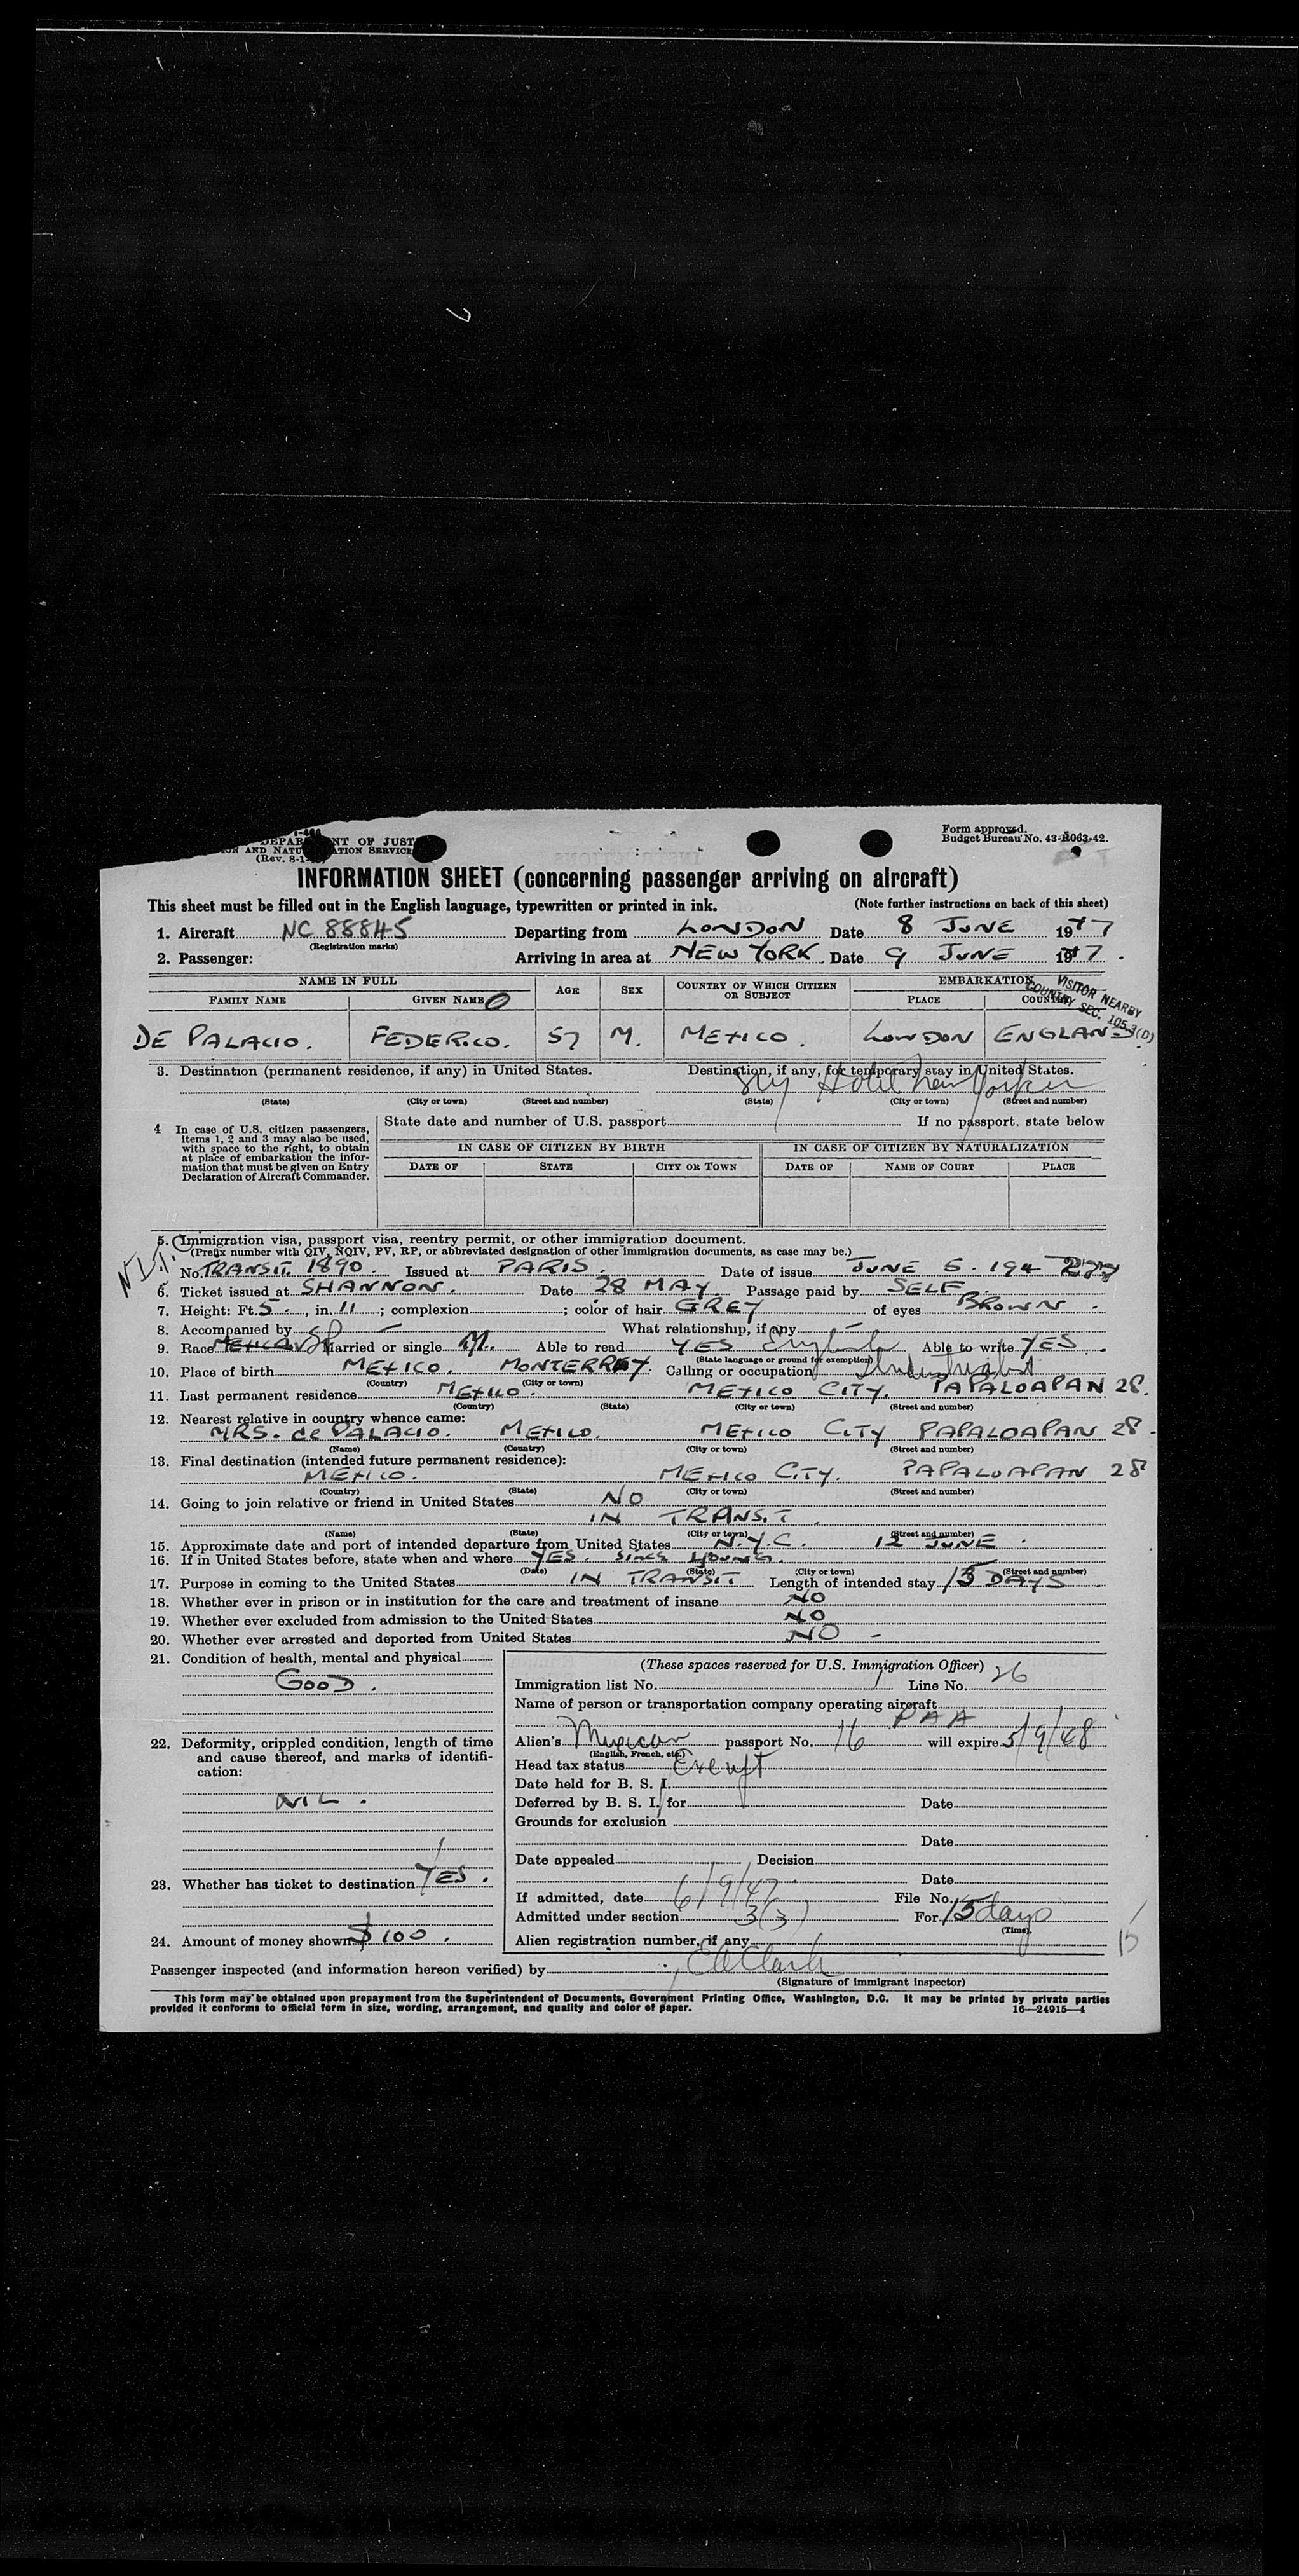 NT OF JUST
ON AND NATU ATION SERVICE
(Rev. 8-1-
Form approved.
Budget Bureau No. 43-R063-42.
INFORMATION SHEET (concerning passenger arriving on aircraft)
This sheet must be filled out in the English language, typewritten or printed in ink. (Note further instructions on back of this sheet)
1. Aircraft NC 88845 Departing from LONDON Date 8 JUNE 1947
(Registration marks)
2. Passenger: Arriving in area at NEW YORK Date 9 JUNE 1947.
NAME IN FULL AGE SEX COUNTRY OF WHICH CITIZEN OR SUBJECT EMBARKATION
FAMILY NAME GIVEN NAME PLACE COUNTRY
VISITOR NEARBY
COUNTRY SEC. 105.3(D)
DE PALACIO. FEDERICO. 57 M. MEXICO. LONDON ENGLAND
3. Destination (permanent residence, if any) in United States. Destination, if any, for temporary stay in United States.
Hotel New Yorker
(State) (City or town) (Street and number) (State) (City or town) (Street and number)
4 In case of U.S. citizen passengers, items 1, 2 and 3 may also be used, with space to the right, to obtain at place of embarkation the information that must be given on Entry Declaration of Aircraft Commander.
State date and number of U.S. passport If no passport, state below
IN CASE OF CITIZEN BY BIRTH IN CASE OF CITIZEN BY NATURALIZATION
DATE OF STATE CITY OR TOWN DATE OF NAME OF COURT PLACE
5. Immigration visa, passport visa, reentry permit, or other immigration document.
(Prefix number with QIV, NQIV, PV, RP, or abbreviated designation of other immigration documents, as case may be.)
No. TRANSIT 1890. Issued at PARIS. Date of issue JUNE 5. 194
6. Ticket issued at SHANNON. Date 28 MAY. Passage paid by SELF.
7. Height: Ft. 5., in. 11; complexion ; color of hair GREY of eyes BROWN.
8. Accompanied by — What relationship, if any —
9. Race MEXICAN Sp Married or single M. Able to read YES English Able to write YES.
(State language or ground for exemption)
10. Place of birth MEXICO. MONTERREY. Calling or occupation Industrialist
(Country) (City or town)
11. Last permanent residence MEXICO. MEXICO CITY. PAPALOAPAN 28.
(Country) (State) (City or town) (Street and number)
12. Nearest relative in country whence came:
MRS. de PALACIO. MEXICO. MEXICO CITY PAPALOAPAN 28.
(Name) (Country) (City or town) (Street and number)
13. Final destination (intended future permanent residence):
MEXICO. MEXICO CITY. PAPALOAPAN 28
(Country) (State) (City or town) (Street and number)
14. Going to join relative or friend in United States NO
IN TRANSIT.
(Name) (State) (City or town) (Street and number)
15. Approximate date and port of intended departure from United States N.Y.C. 12 JUNE.
16. If in United States before, state when and where YES. SINCE YOUNG.
(Date) (State) (City or town) (Street and number)
17. Purpose in coming to the United States IN TRANSIT Length of intended stay 15 DAYS
18. Whether ever in prison or in institution for the care and treatment of insane NO
19. Whether ever excluded from admission to the United States NO
20. Whether ever arrested and deported from United States NO —
21. Condition of health, mental and physical
GOOD.
22. Deformity, crippled condition, length of time and cause thereof, and marks of identification:
NIL.
23. Whether has ticket to destination YES.
24. Amount of money shown $100.
(These spaces reserved for U.S. Immigration Officer)
Immigration list No. 1 Line No. 26
Name of person or transportation company operating aircraft
PAA
Alien's Mexican passport No. 16 will expire 5/9/48
(English, French, etc.)
Head tax status Exempt
Date held for B. S. I.
Deferred by B. S. I. for Date
Grounds for exclusion
Date
Date appealed Decision
Date
If admitted, date 6/9/47 File No.
Admitted under section 3(3) For 15 days
(Time).
Alien registration number, if any
15
Passenger inspected (and information hereon verified) by
(Signature of immigrant inspector)
This form may be obtained upon prepayment from the Superintendent of Documents, Government Printing Office, Washington, D.C. It may be printed by private parties
provided it conforms to official form in size, wording, arrangement, and quality and color of paper. 16—24915—4